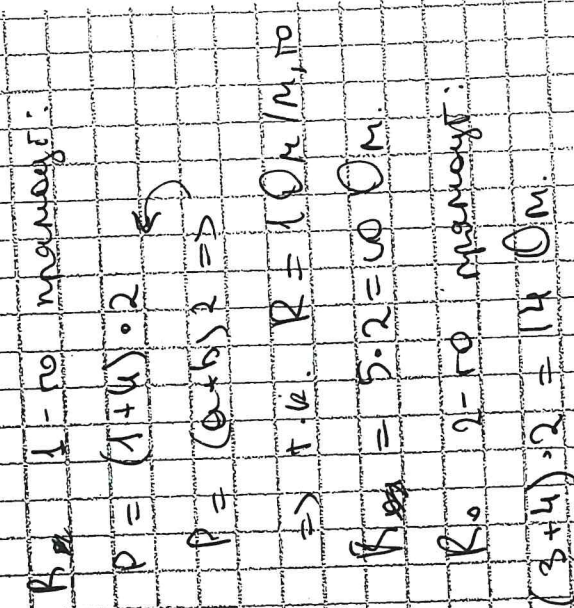 R 1-го прямоуг.:
P = (1+4)·2
P = (a+b)2 =>
=> т.к. R = 1 Ом/м, то
R = 5·2=10 Ом.
R. 2-го прямоуг:
(3+4)·2 = 14 Ом.